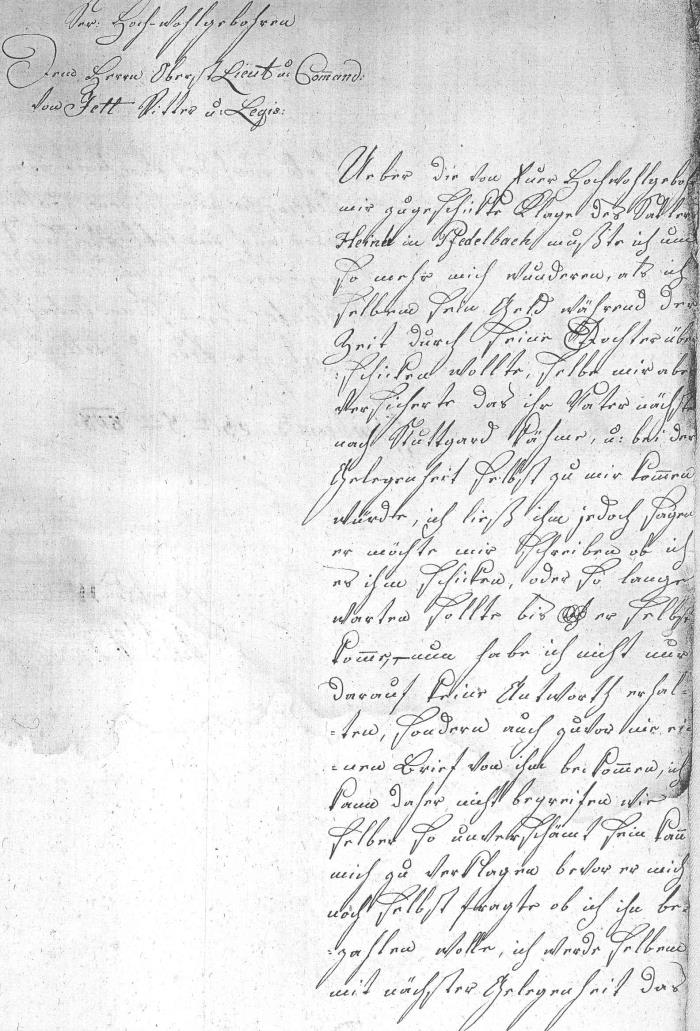 Sr: Hoch-wohlgebohren
Dem Herrn Oberst Lieut u: Comand:
von Jett Ritter u: Legio:
Ueber die von Euer Hochwohlgeboh
mir zugeschikte Klage des Sattler
in Pfedelbach mußte ich um
so mehr mich wunderen, als ich
selbem sein Geld während der
Zeit durch seine Tochter über
:schicken wollte, selbe mir aber
versicherte das ihr Vater nächst
nach Stuttgard kähme, u: bei der
Gelegenheit selbst zu mir kommen
würde, ich ließ ihm jedoch sagen
er möchte mir schreiben ob ich
es ihm schicken, oder so lange
warten sollte bis er selbst
komme, – nun habe ich nicht nur
darauf keine Antworth erhal=
=ten, sondern auch zuvor nie ei=
=nen Brief von ihm bekommen, ich
kann daher nicht begreifen wie
selber so unverschämt sein kann
mich zu verklagen bevor er mich
noch selbst fragte ob ich ihn be=
=zahlen wolle, ich werde selbem
mit nächster Gelegenheit das